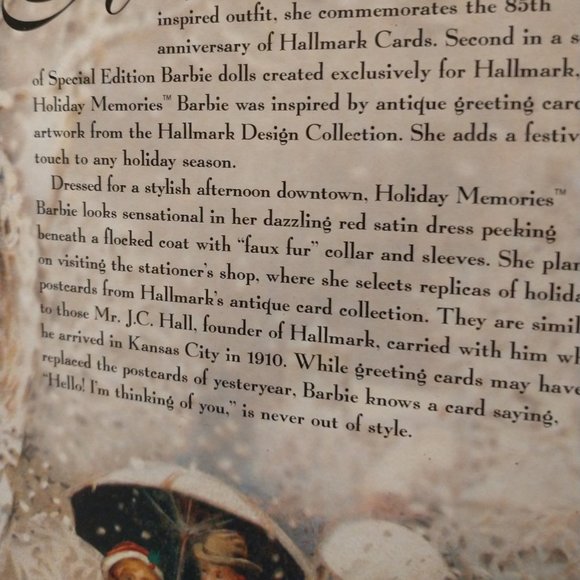 inspired outfit, she commemorates the 85th
anniversary of Hallmark Cards. Second in a
of Special Edition Barbie dolls created exclusively for Hallmark,
Holiday Memories™ Barbie was inspired by antique greeting card
artwork from the Hallmark Design Collection. She adds a festiv
touch to any holiday season.
Dressed for a stylish afternoon downtown, Holiday Memories™
Barbie looks sensational in her dazzling red satin dress peeking
beneath a flocked coat with "faux fur" collar and sleeves. She plan
on visiting the stationer's shop, where she selects replicas of holida
postcards from Hallmark's antique card collection. They are simil
to those Mr. J.C. Hall, founder of Hallmark, carried with him wh
he arrived in Kansas City in 1910. While greeting cards may have
replaced the postcards of yesteryear, Barbie knows a card saying,
"Hello! I'm thinking of you," is never out of style.